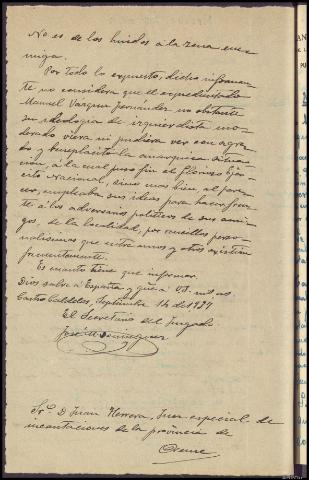 No es de los huidos á la zona ene-
miga.
Por todo lo expuesto, dicho informan-
te no considera que el expedientado
Manuel Vazquez Fernández no obstante
su ideologia de izquierdista mo-
derado viera ni pudiera ver con agra-
do y beneplácito la anarquica situa-
ción, á la cual puso fin el glorioso Ejér-
cito Nacional, sino mas bien, al pare-
cer, empleaba sus ideas para hacer fren-
te á los adversarios politicos de sus ami-
gos, de la localidad, por rencillas perso-
nalisimas que entre unos y otros existian
frecuentemente.
Es cuanto tiene que informar.
Dios salve á España y gue á Vd. ms. as.
Castro Caldelas, Septiembre 14 de 1937
El Secretario del Juzgado
José Dominguez
Sr. D Juan Herrera, Juez especial de
incautaciones de la provincia de
Orense